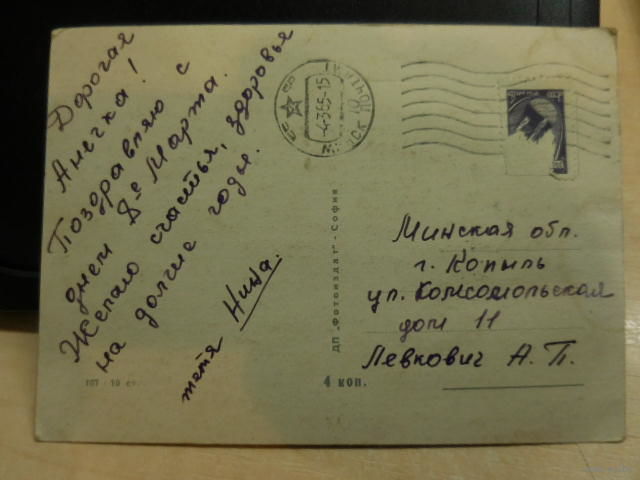 Дорогая
Анечка!
Поздравляю с
днем 8-е Марта.
Желаю счастья, здоровья
на долгие годы.
тетя Нина.
107 - 10 ст.
ДП „Фотоиздат" - София
4 коп.
СССР
-4365-15
МИНСК
ПОЧТАМТ
Минская обл.
г. Копыль
ул. Комсомольская
дом 11
Левкович А. П.